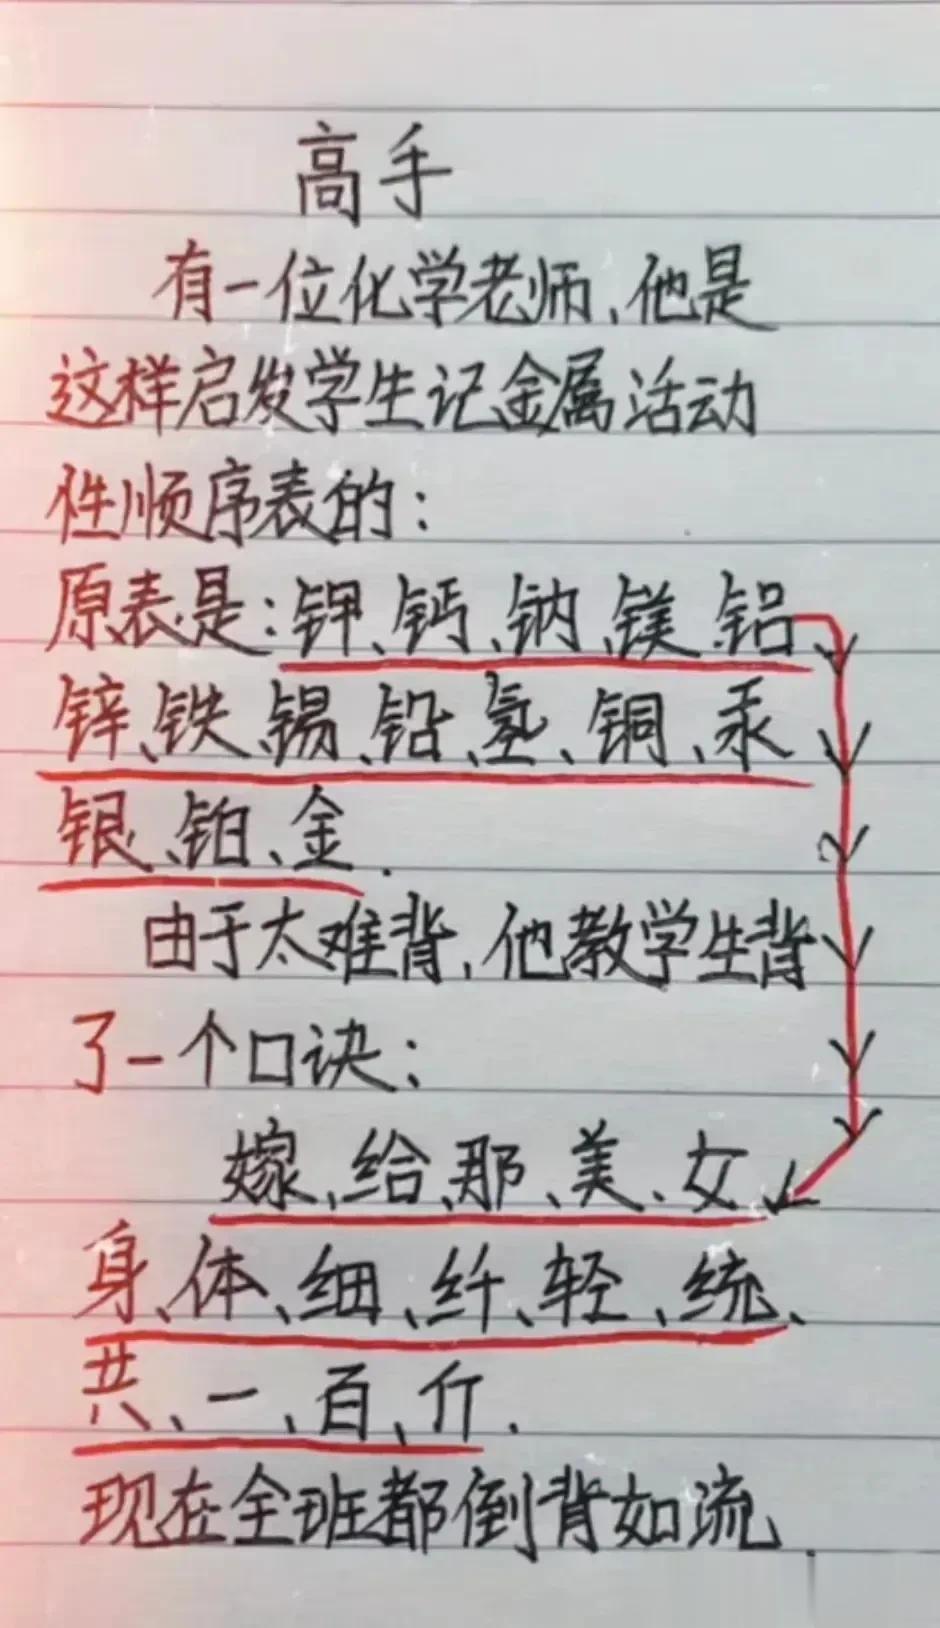 高手
有一位化学老师,他是
这样启发学生记金属活动
性顺序表的:
原表是:钾、钙、钠、镁、铝、
锌、铁、锡、铅、氢、铜、汞
银、铂、金.
由于太难背,他教学生背
了一个口诀:
嫁、给、那、美、女
身、体、细、纤、轻、统、
共、一、百、斤.
现在全班都倒背如流.